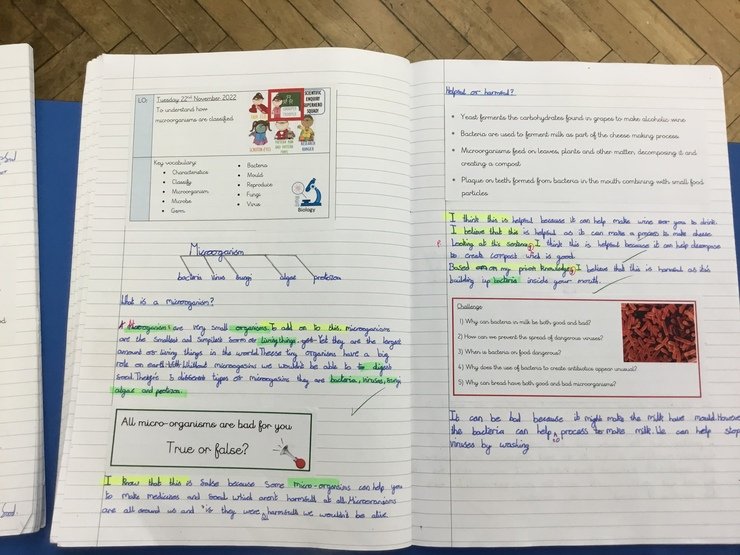 LO:
Tuesday 22nd November 2022
To understand how
microorganisms are classified
SCIENTIFIC
ENQUIRY
SUPERHERO
SQUAD!
RESEARCH
RANGER
Key vocabulary:
Characteristics
Classify
Microorganism
Microbe
Germ
Bacteria
Mould
Reproduce
Fungi
Virus
Biology
Microorganism
bacteria virus fungi algae protozoa
What is a microorganism?
Microorganisms are very small organisms. To add on to this, microorganisms
are the smallest and simplest form of living things. Yet they are the largest
amount of living things in the world. These tiny organisms have a big
role on earth. Without microorganisms we wouldn't be able to digest
food. There's 5 different types of microorganisms they are bacteria, viruses, fungi
algae and protozoa.
All micro-organisms are bad for you
True or false?
I know that this is false because some micro-organisms can help you
to make medicines and bread which aren't harmful at all. Microorganisms
are all around us and if they were harmful we wouldn't be alive.
Helpful or harmful?
Yeast ferments the carbohydrates found in grapes to make alcoholic wine
Bacteria are used to ferment milk as part of the cheese making process
Microorganisms feed on leaves, plants and other matter, decomposing it and
creating a compost
Plaque on teeth formed from bacteria in the mouth combining with small food
particles
I think this is helpful because it can help make wine for you to drink.
I believe that this is helpful as it can make a process to make cheese.
Looking at this sentence, I think this is helpful because it can help decompose
to create compost which is good.
Based on my prior knowledge, I believe that this is harmful as it's
building up bacteria inside your mouth.
Challenge
1) Why can bacteria in milk be both good and bad?
2) How can we prevent the spread of dangerous viruses?
3) When is bacteria on food dangerous?
4) Why does the use of bacteria to create antibiotics appear unusual?
5) Why can bread have both good and bad microorganisms?
It can be bad because it might make the milk have mould. However
the bacteria can help process to make milk. We can help stop
viruses by washing